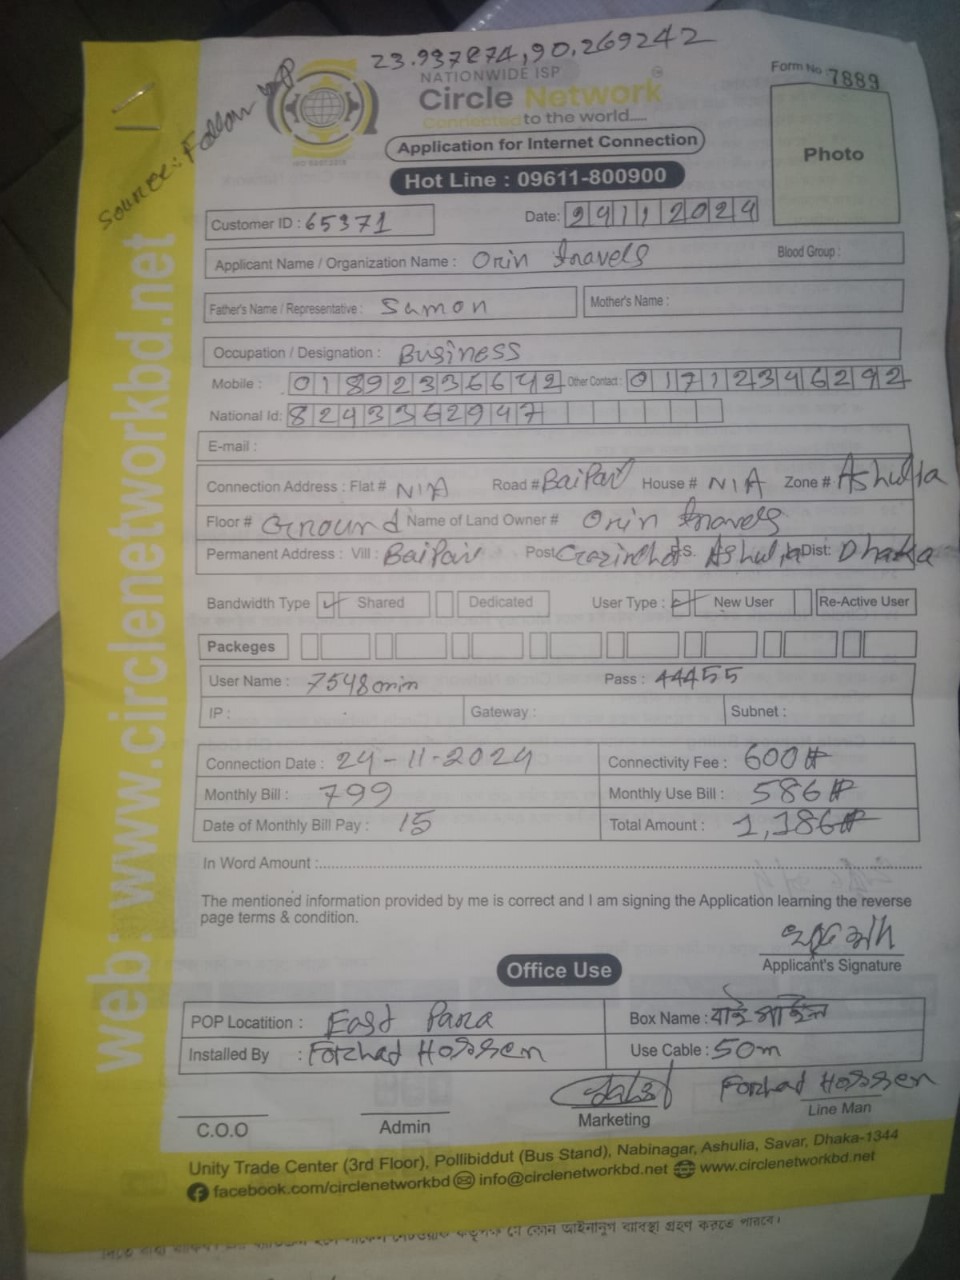 23.937874,90.269242
Source: Follow up
NATIONWIDE ISP
Circle Network
Connected to the world.....
Form No 7889
Photo
Application for Internet Connection
Hot Line : 09611-800900
Customer ID : 65371 Date: 24112024
Applicant Name / Organization Name : Orin Travels Blood Group :
Father's Name / Representative : Samon Mother's Name :
Occupation / Designation : Business
Mobile : 01892336642 Other Contact : 01712346292
National Id: 8243362947
E-mail :
Connection Address : Flat # N/A Road # Baipail House # N/A Zone # Ashulia
Floor # Ground Name of Land Owner # Orin Travels
Permanent Address : Vill : Baipail Post Gazirchat P.S. Ashulia Dist: Dhaka
Bandwidth Type Shared Dedicated User Type : New User Re-Active User
Packeges
User Name : 7548orin Pass : 44455
IP : Gateway : Subnet :
Connection Date : 24-11-2024 Connectivity Fee : 600
Monthly Bill : 799 Monthly Use Bill : 586
Date of Monthly Bill Pay : 15 Total Amount : 1,186
In Word Amount :
The mentioned information provided by me is correct and I am signing the Application learning the reverse
page terms & condition.
Applicant's Signature
Office Use
POP Locatition : East Para Box Name : বাইপাইল
Installed By : Forhad Hossen Use Cable : 50m
Forhad Hossen
C.O.O Admin Marketing Line Man
Unity Trade Center (3rd Floor), Pollibiddut (Bus Stand), Nabinagar, Ashulia, Savar, Dhaka-1344
facebook.com/circlenetworkbd info@circlenetworkbd.net www.circlenetworkbd.net
web: www.circlenetworkbd.net
যে কোন আইনানুগ ব্যবস্থা গ্রহণ করতে পারবে।